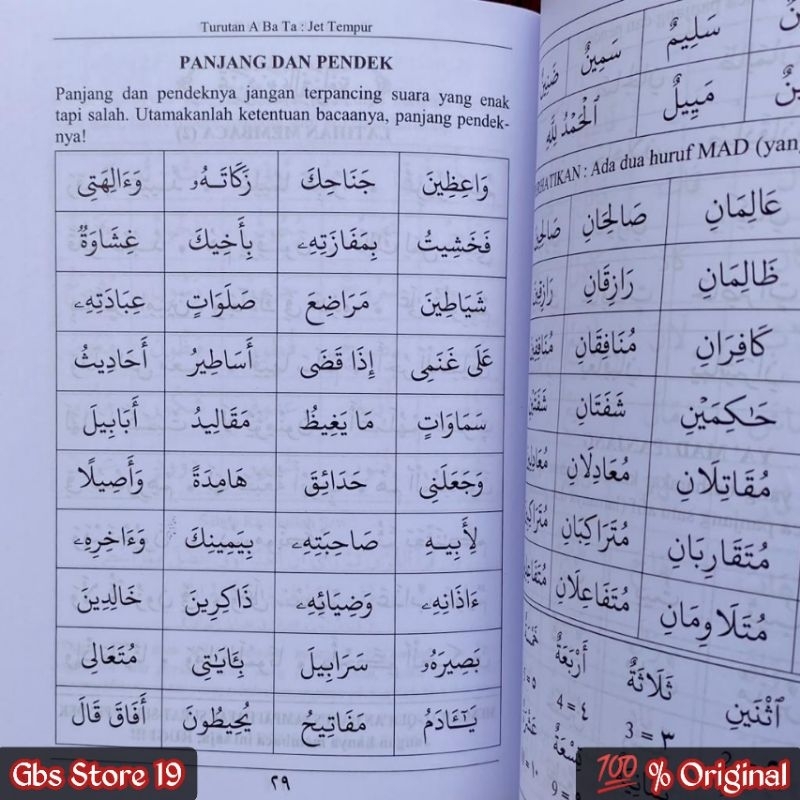 Turutan A Ba Ta : Jet Tempur
PANJANG DAN PENDEK
Panjang dan pendeknya jangan terpancing suara yang enak
tapi salah. Utamakanlah ketentuan bacaanya, panjang pendek-
nya!
وَاعِظِينَ جَنَاحِكَ زَكَاتَـهُۥ وَءَالِهَتِى
فَخَشِيتُ بِمَفَازَتِهِۦ بِأَخِيكَ غِشَاوَةٌ
شَيَاطِينَ مَرَاضِعَ صَلَوَاتٍ عِبَادَتِهِۦ
عَلَى غَنَمِى إِذَا قَضَى أَسَاطِيرُ أَحَادِيثُ
سَمَاوَاتٍ مَا يَغِيظُ مَقَالِيدُ أَبَابِيلَ
وَجَعَلَنِى حَدَائِقَ هَامِدَةً وَأَصِيلًا
لِأَبِيـهِ صَاحِبَتِهِۦ بِيَمِينِكَ وَءَاخِرِهِۦ
ءَاذَانِهِۦ وَضِيَائِهِۦ ذَاكِرِينَ خَالِدِينَ
بَصِيرَهُۥ سَرَابِيلَ بِـَٔايَاتِى مُتَعَالِى
يَـٰٓـَٔادَمُ مَفَاتِيحُ يُحِيطُونَ أَفَاقَ قَالَ
٢٩
سَلِيمٌ سَمِينٌ ضَنِينٌ
مَبِيلٌ الْحَمْدُ لِلَّهِ
: Ada dua huruf MAD (yang
عَالِمَانِ صَالِحَانِ
ظَالِمَانِ رَازِقَانِ
كَافِرَانِ مُنَافِقَانِ
حَاكِمَيْنِ شَفَتَانِ
مُقَاتِلَانِ مُعَادِلَانِ
مُتَقَارِبَانِ مُتَرَاكِبَانِ
مُتَلَاوِمَانِ مُتَفَاعِلَانِ
اثْنَيْنِ ثَلَاثَةٌ أَرْبَعَةٌ
3 = ٣ 4 = ٤
Gbs Store 19
💯 % Original